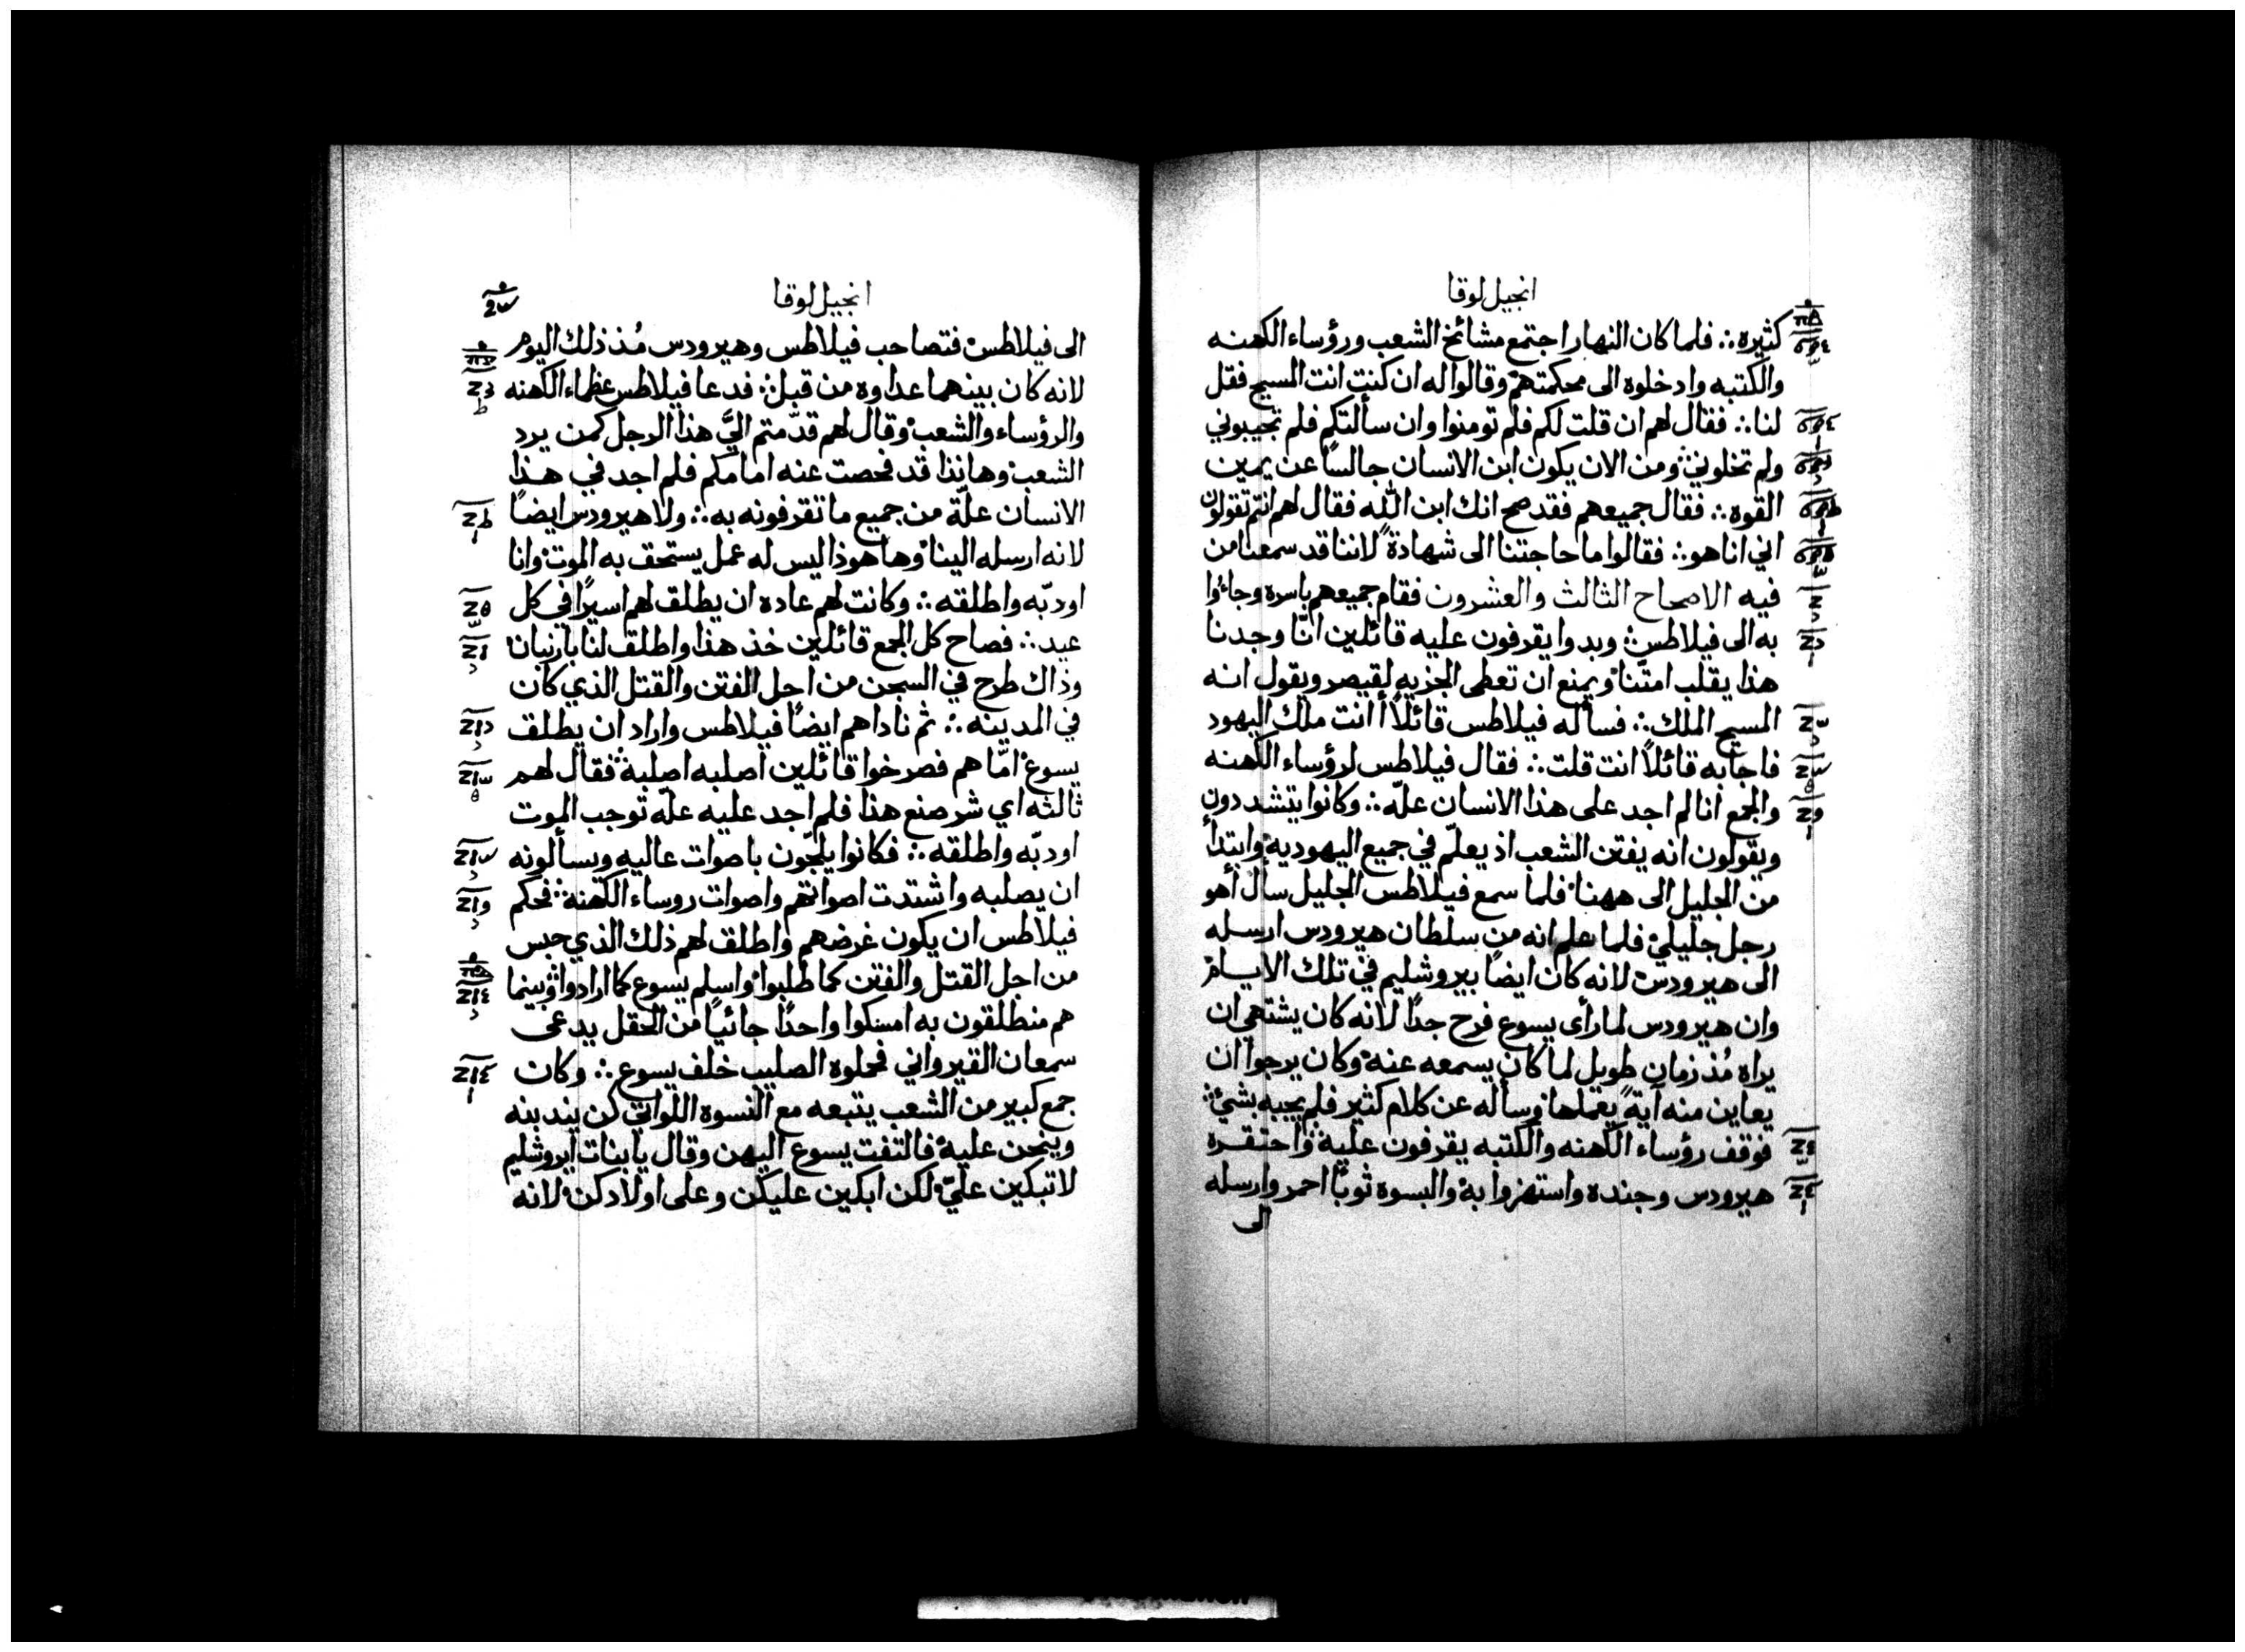 انجيل لوقا
كثيره ∴ فلما كان النهار اجتمع مشائخ الشعب ورؤساء الكهنه
والكتبه وادخلوه الى محكمتهم وقالوا له ان كنت انت المسيح فقل
لنا ∴ فقال لهم ان قلت لكم فلم تومنوا وان سألتكم فلم تجيبوني
ولم تخلوني ومن الان يكون ابن الانسان جالسًا عن يمين
القوه ∴ فقال جميعهم فقد صح انك ابن الله فقال لهم انتم تقولون
اني انا هو ∴ فقالوا ما حاجتنا الى شهادةً لاننا قد سمعنا من
فيه الاصحاح الثالث والعشرون فقام جميعهم باسره وجاءوا
به الى فيلاطس وبدوا يقرفون عليه قائلين انّا وجدنا
هذا يقلب امتنا ويمنع ان تعطى الجزيه لقيصر ويقول انه
المسيح الملك ∴ فسأله فيلاطس قائلاً أأنت ملك اليهود
فاجابه قائلاً انت قلت ∴ فقال فيلاطس لرؤساء الكهنه
والجمع انا لم اجد على هذا الانسان علّه ∴ وكانوا يتشددون
ويقولون انه يفتن الشعب اذ يعلّم في جميع اليهودية وابتدأ
من الجليل الى ههنا فلما سمع فيلاطس الجليل سأل أهو
رجل جليلي فلما علم انه من سلطان هيرودس ارسله
الى هيرودس لانه كان ايضًا بيروشليم في تلك الايام
وان هيرودس لما رأى يسوع فرح جدًا لانه كان يشتهي ان
يراه مُذ زمان طويل لما كان يسمعه عنه وكان يرجوا ان
يعاين منه آيةً يعملها وسأله عن كلام كثير فلم يجيبه بشيٍ
فوقف رؤساء الكهنه والكتبه يقرفون عليه واحتقره
هيرودس وجنده واستهزوا به والبسوه ثوبًا احمر وارسله
الى
انجيل لوقا
الى فيلاطس فتصاحب فيلاطس وهيرودس مُذ ذلك اليوم
لانه كان بينهما عداوه من قبل ∴ فدعا فيلاطس عظماء الكهنه
والرؤساء والشعب وقال لهم قدّمتم اليَّ هذا الرجل كمن يرد
الشعب وهانذا قد فحصت عنه امامكم فلم اجد في هذا
الانسان علّة من جميع ما تقرفونه به ∴ ولا هيرودس ايضًا
لانه ارسله الينا وها هوذا ليس له عمل يستحق به الموت وانا
اودبّه واطلقه ∴ وكانت لهم عاده ان يطلق لهم اسيرًا في كل
عيد ∴ فصاح كل الجمع قائلين خذ هذا واطلق لنا بارنبان
وذاك طرح في السجن من اجل الفتن والقتل الذي كان
في المدينه ∴ ثم ناداهم ايضًا فيلاطس واراد ان يطلق
يسوع امّا هم فصرخوا قائلين اصلبه اصلبه فقال لهم
ثالثه اي شر صنع هذا فلم اجد عليه علّه توجب الموت
اودبّه واطلقه ∴ فكانوا يلجّون باصوات عاليه ويسألونه
ان يصلبه واشتدت اصواتهم واصوات روساء الكهنه فحكم
فيلاطس ان يكون غرضهم واطلق لهم ذلك الذي حبس
من اجل القتل والفتن كما طلبوا واسلم يسوع كما ارادوا وبينما
هم منطلقون به امسكوا واحدًا جائيًا من الحقل يدعى
سمعان القيرواني فحملوه الصليب خلف يسوع ∴ وكان
جمع كبير من الشعب يتبعه مع النسوه اللواتي كن يندبنه
وينحن عليه فالتفت يسوع اليهن وقال يا بنات ايروشليم
لا تبكين عليّ لكن ابكين عليكن وعلى اولادكن لانه